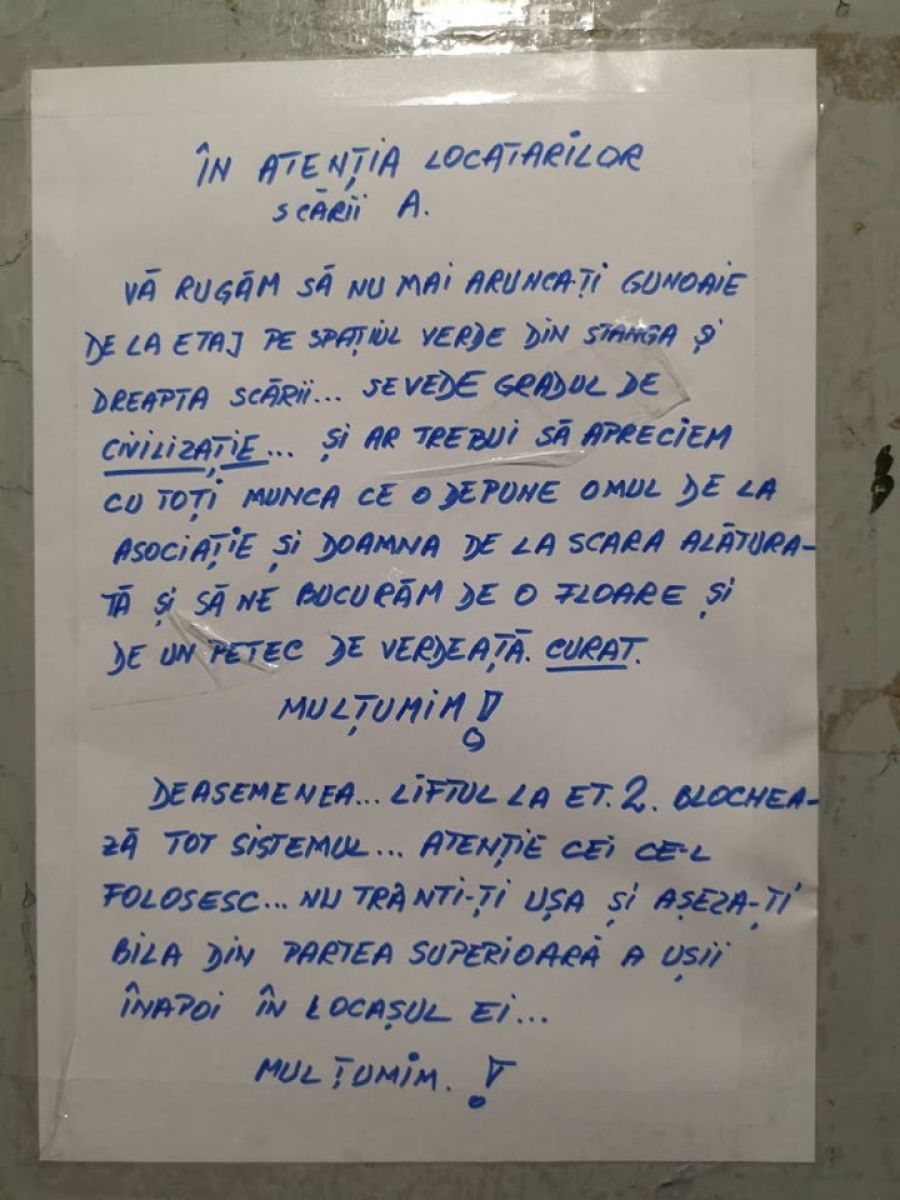 ÎN ATENȚIA LOCATARILOR
SCĂRII A.
VĂ RUGĂM SĂ NU MAI ARUNCA-ȚI GUNOAIE
DE LA ETAJ PE SPAȚIUL VERDE DIN STANGA ȘI
DREAPTA SCĂRII... SE VEDE GRADUL DE
CIVILIZAȚIE... ȘI AR TREBUI SĂ APRECIEM
CU TOȚI MUNCA CE O DEPUNE OMUL DE LA
ASOCIAȚIE ȘI DOAMNA DE LA SCARA ALĂTURA-
TĂ ȘI SĂ NE BUCURĂM DE O FLOARE ȘI
DE UN PETEC DE VERDEAȚĂ. CURAT.
MULȚUMIM!
DEASEMENEA... LIFTUL LA ET. 2. BLOCHEA-
ZĂ TOT SISTEMUL... ATENȚIE CEI CE-L
FOLOSESC... NU TRÂNTI-ȚI UȘA ȘI AȘEZA-ȚI
BILA DIN PARTEA SUPERIOARĂ A UȘII
ÎNAPOI ÎN LOCAȘUL EI...
MULȚUMIM. !